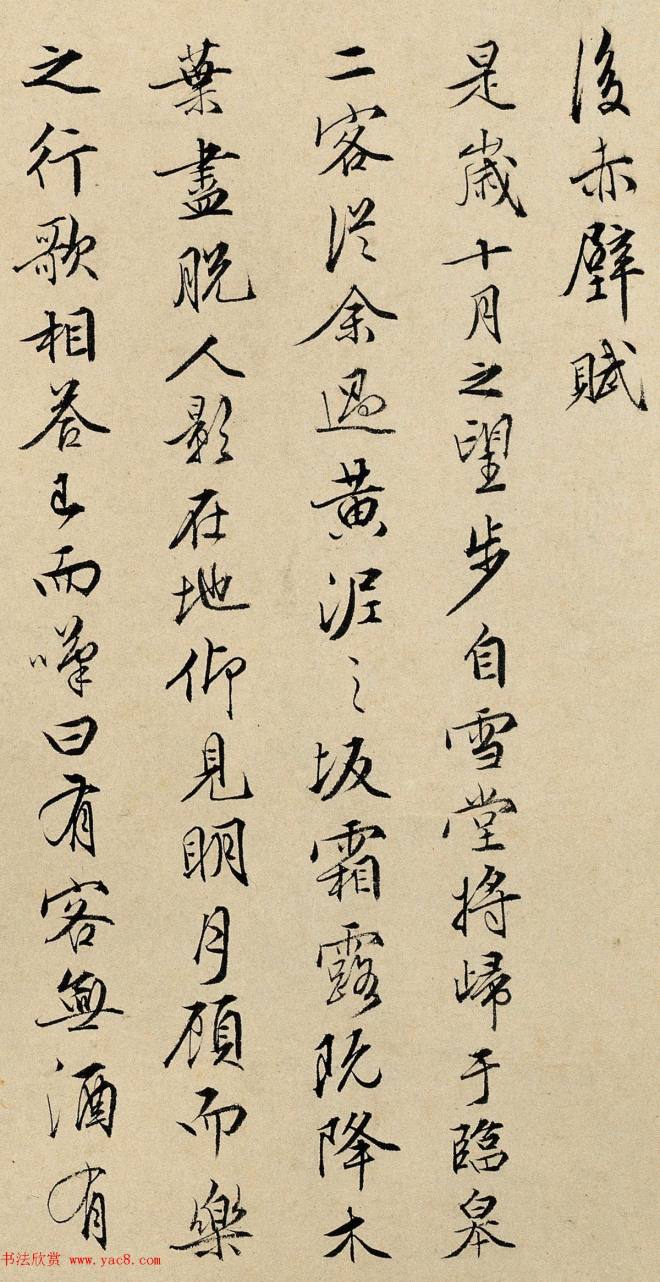 後赤壁賦
是歲十月之望步自雪堂將歸于臨皋
二客從余過黃泥之坂霜露既降木
葉盡脫人影在地仰見明月顧而樂
之行歌相答已而嘆曰有客無酒有
书法欣赏 www.yac8.com